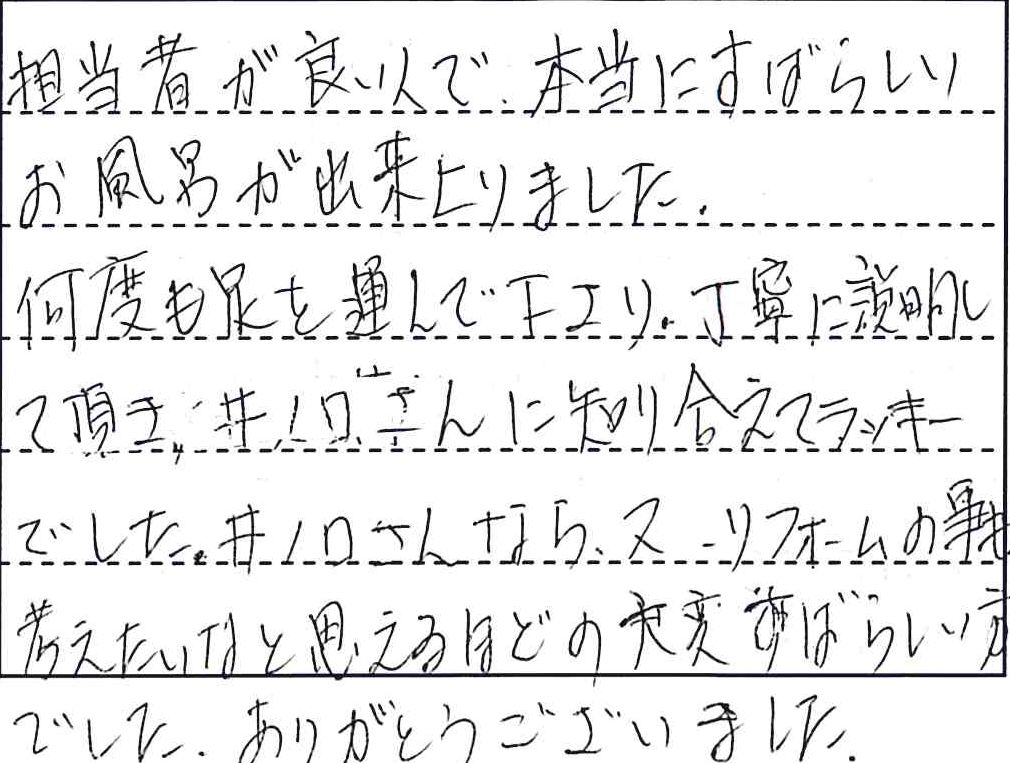 担当者が良い人で、本当にすばらしい
お風呂が出来上りました。
何度も足を運んで下エリ、丁寧に説明し
て頂き、井ノ口さんに知り合えてラッキー
でした。井ノ口さんなら、又リフォームの事も
考えたいなと思えるほどの大変すばらしい方
でした。ありがとうございました。